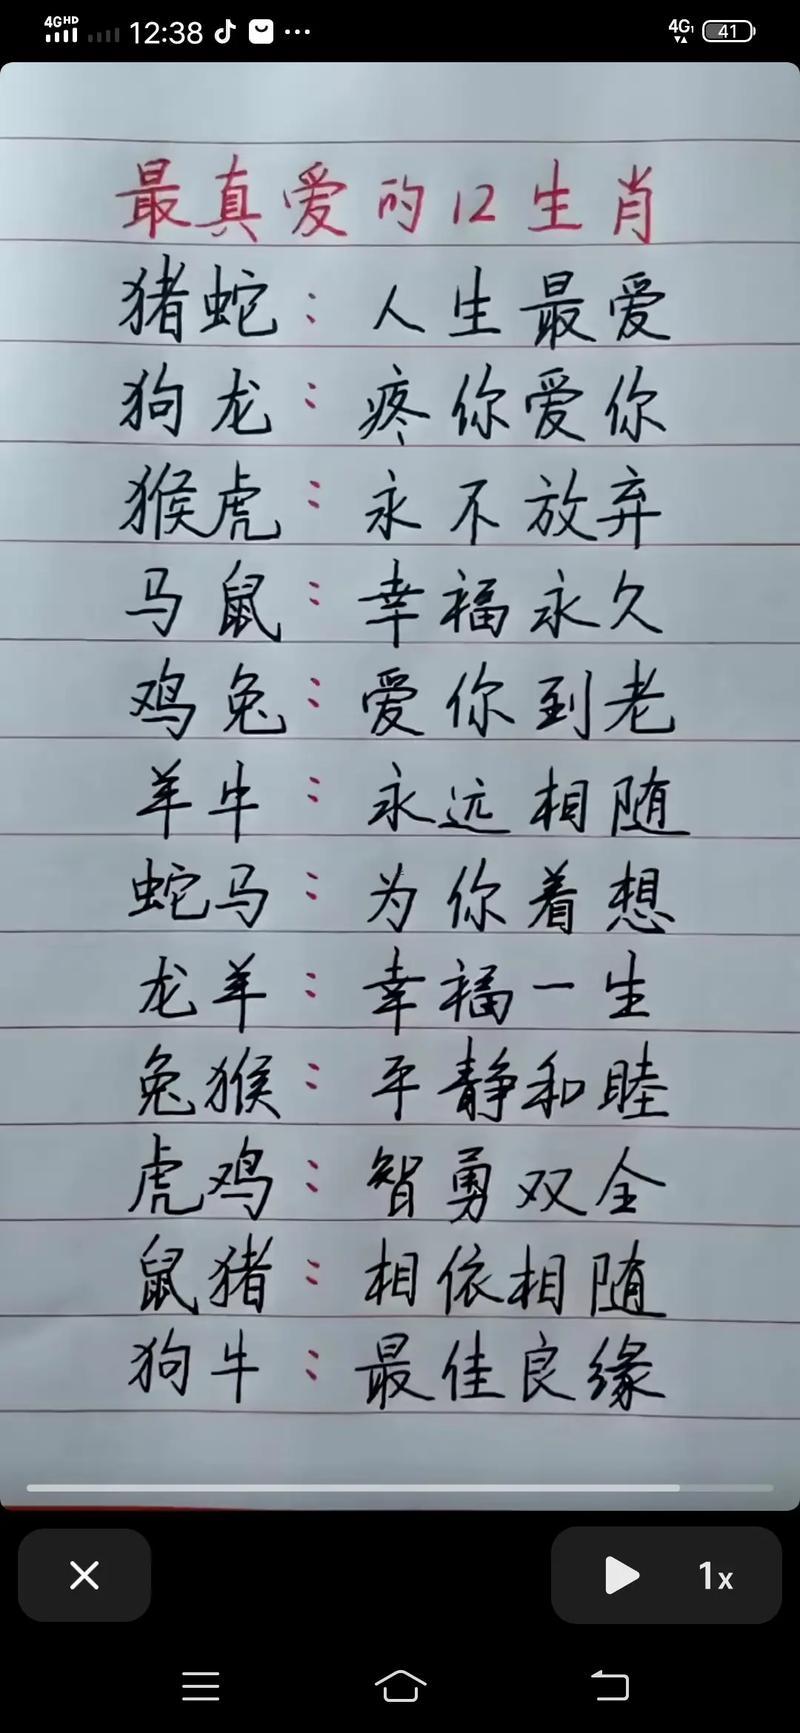 4GHD 12:38 4G1 41
最真爱的12生肖
猪蛇：人生最爱
狗龙：疼你爱你
猴虎：永不放弃
马鼠：幸福永久
鸡兔：爱你到老
羊牛：永远相随
蛇马：为你着想
龙羊：幸福一生
兔猴：平静和睦
虎鸡：智勇双全
鼠猪：相依相随
狗牛：最佳良缘
1x